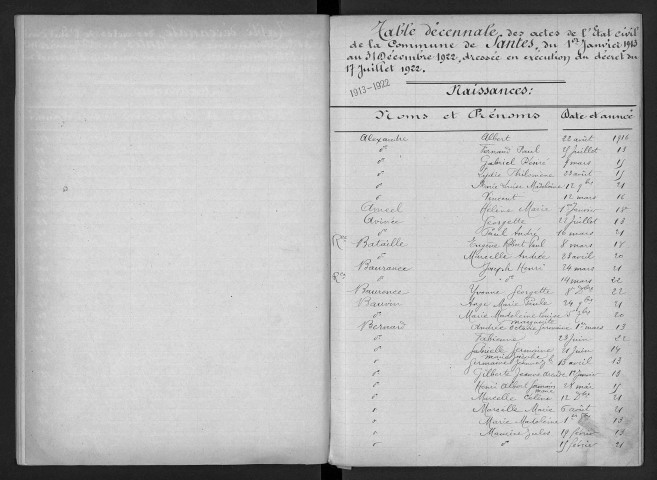 Table décennale des actes de l'Etat civil
de la Commune de Santes, du 1er Janvier 1913
au 31 Décembre 1922, dressée en exécution du décret du
17 Juillet 1922.
1913-1922
Naissances:
Noms et Prénoms Date et année
Alexandre Albert 22 août 1916
do Fernand Paul 25 juillet 13
do Gabriel Désiré 9 mars 15
do Lydie Philomène 22 août 15
do Marie Louise Madeleine 12 9bre 21
do Vincent 12 mars 16
Hélène Marie 1er Janvier
Georgette juillet 13
do Paul André 16 mars 21
Bataille Eugène Paul 8 mars 18
do Marcelle Andrée 28 avril 20
Baurance Joseph Henri 24 mars 21
do do 14 mars 22
Baurance Yvonne Georgette 8 22
Bauvin Marie Paule 24 9bre 21
do Marie Madeleine Louise 5 20
Marguerite
Bernard Andrée Germaine 1er mars 13
do Fabienne 28 juin 22
do Gabrielle Germaine 21 juin 14
do Germaine avril 13
do Gilberte Jeanne 1er Janvier 13
do Henri Albert 28 mai 15
do Marcelle Céline 12 21
do Marcelle Marie 6 août 21
do Marie Madeleine 1er 13
do Maurice Jules 19 février 13
do do 15 février 21